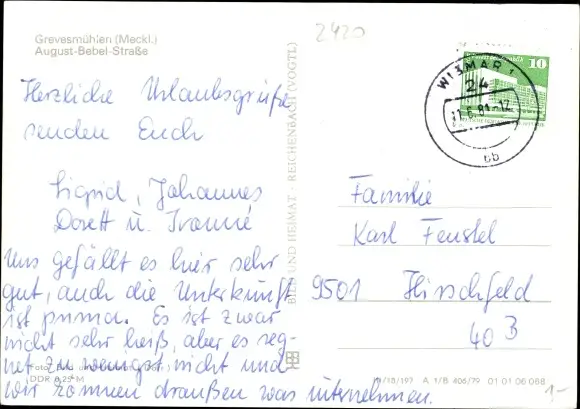 2420
Grevesmühlen (Meckl.)
August-Bebel-Straße
10
WISMAR 1
24
11.6.81-12
bb
Herzliche Urlaubsgrüße
senden Euch
Sigrid, Johannes
Dorett u. Ivonne
Uns gefällt es hier sehr
gut, auch die Unterkunft
ist prima. Es ist zwar
nicht sehr heiß, aber es reg-
net zu wenigst nicht und
wir können draußen was unternehmen.
BILD UND HEIMAT · REICHENBACH (VOGTL)
Familie
Karl Fenstel
9501 Hirschfeld
40 B
Foto: Bild und Heimat
DDR 0,25 M
A 1/B 406/79 01 01 06 088
1-